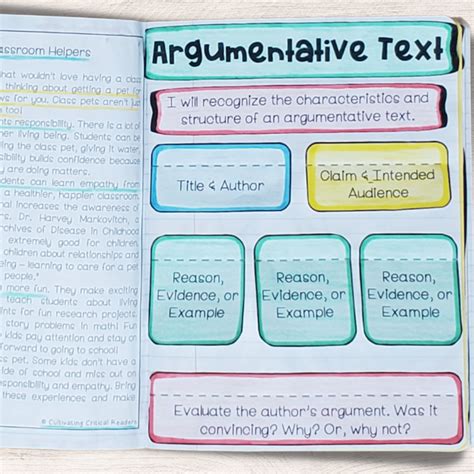 assroom Helpers
hat wouldn't love having a class
thinking about getting a pet for
ws for you. Class pets aren't just
too!
nts responsibility. There is a lot of
her living being. Students can be
the class pet, giving it water,
sibility builds confidence because
y are doing matters.
dents can learn empathy from
a healthier, happier classroom.
nal increases the awareness of
rs. Dr. Harvey Markovitch, a
rchives of Disease in Childhood
extremely good for children.
children about relationships and
eing – learning to care for a pet
people."
more fun. They make exciting
teach students about living
nts for fun research projects.
story problems in math! Fun
ps kids pay attention and stay
forward to going to school!
ss pet. Some kids don't have a
de of school and miss out on
sponsibility and empathy. Bring
these experiences and make
© Cultivating Critical Readers
Argumentative Text
I will recognize the characteristics and
structure of an argumentative text.
Title & Author
Claim & Intended
Audience
Reason,
Evidence, or
Example
Reason,
Evidence, or
Example
Reason,
Evidence, or
Example
Evaluate the author's argument. Was it
convincing? Why? Or, why not?